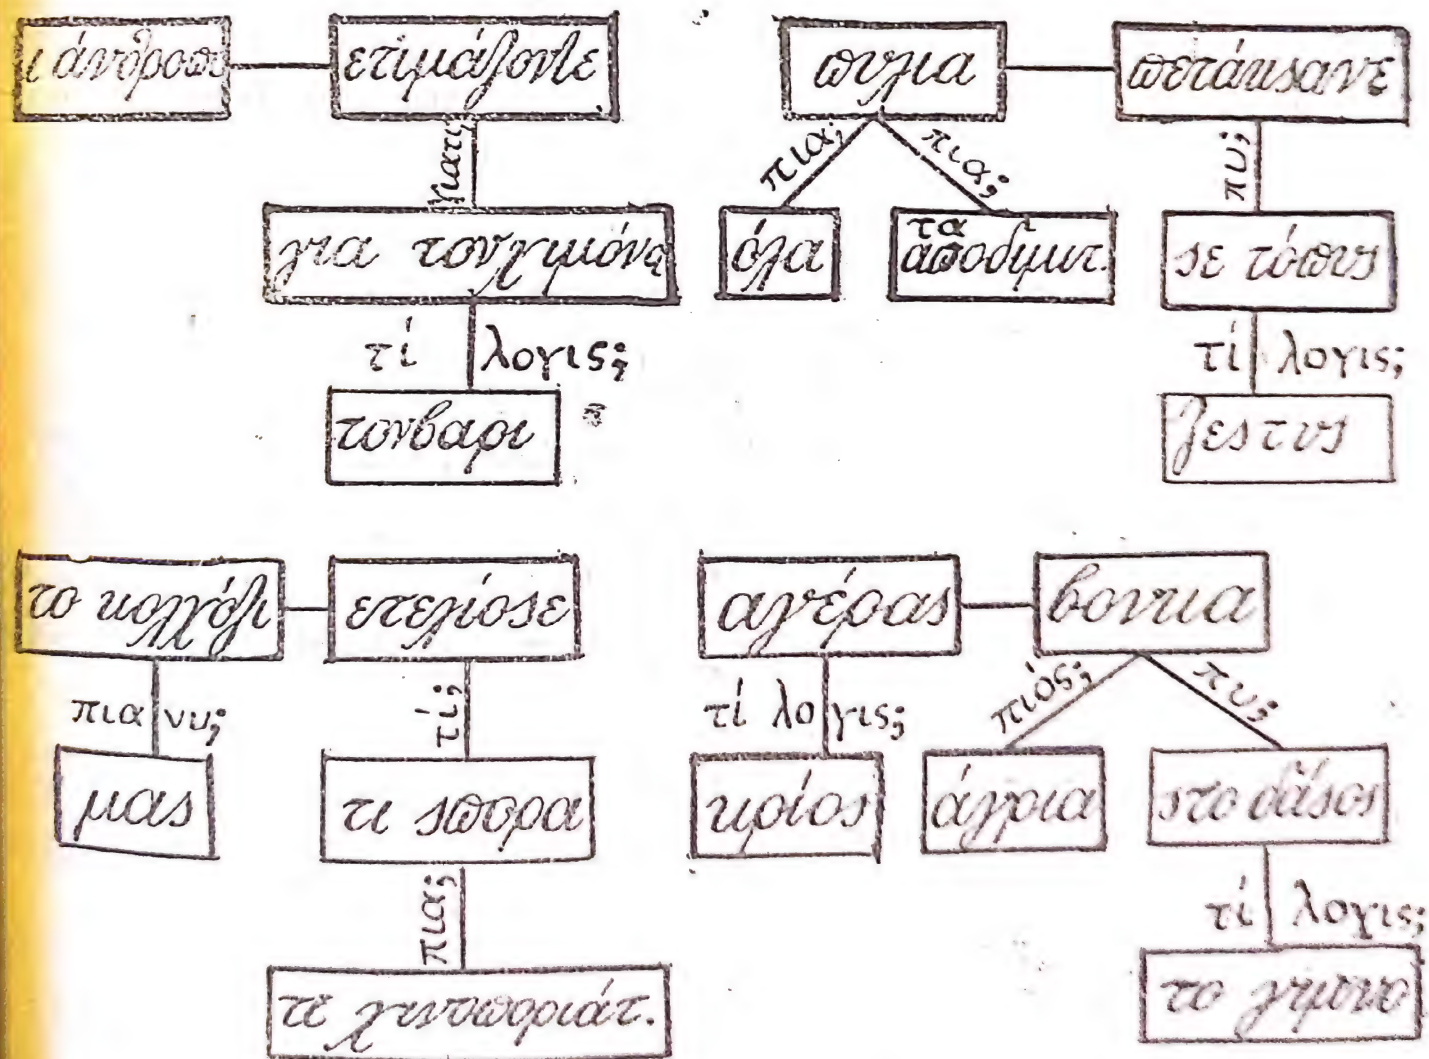 ι άνθροπι ετιμάζοντε
γιατί;
για τονχιμόνα
τί λογις;
τονβαρι
πυλια πετάκσανε
πια; πια; πυ;
όλα τα αποδιμιτ. σε τόπυς
τί λογις;
ζεστυς
το κολχόζι ετελίοσε
πια νυ; τί;
μας τι σπορα
πια;
τι χινοποριάτ.
αγέρας βονκα
τί λογις; πιός; πυ;
κρίος άγρια στο δάσος
τί λογις;
το γιμνο